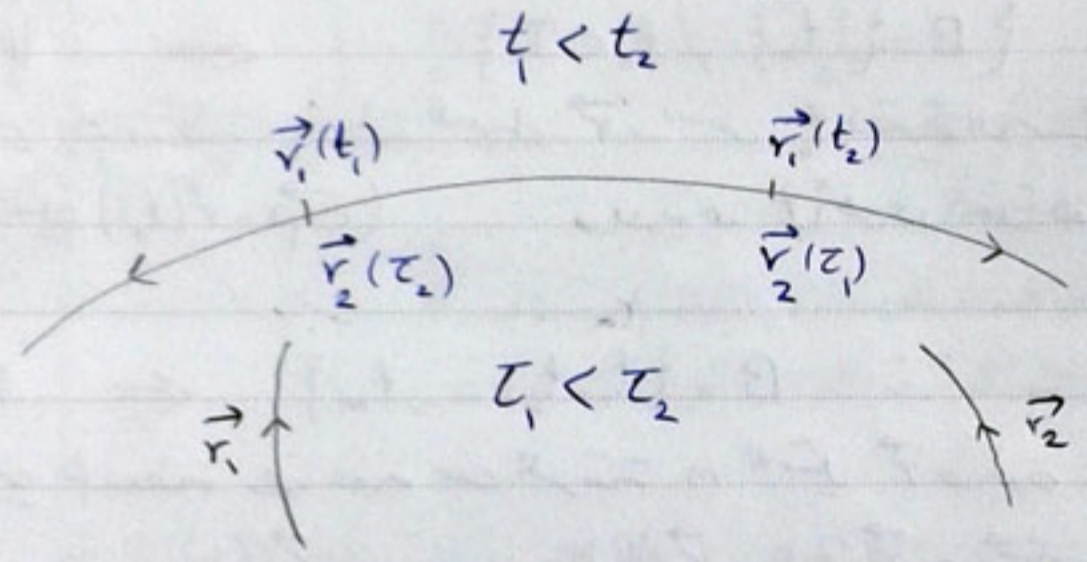 t₁ < t₂
r⃗₁(t₁) r⃗₁(t₂)
r⃗₂(τ₂) r⃗₂(τ₁)
τ₁ < τ₂
r⃗₁ r⃗₂